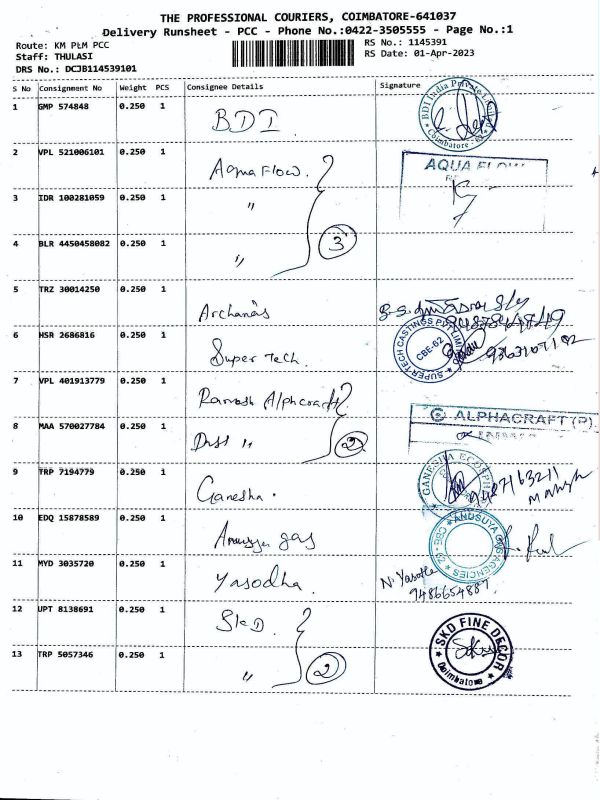 THE PROFESSIONAL COURIERS, COIMBATORE-641037
Delivery Runsheet - PCC - Phone No.:0422-3505555 - Page No.:1
Route: KM PLM PCC
RS No.: 1145391
Staff: THULASI
RS Date: 01-Apr-2023
DRS No.: DCJB114539101
S No Consignment No Weight PCS Consignee Details Signature
1 GMP 574848 0.250 1 BDI
BDI India Private Limited
Coimbatore
2 VPL 521006101 0.250 1 Aqua Flow
AQUA FLOW
3 IDR 100281059 0.250 1 "
3
4 BLR 4450458082 0.250 1 "
5 TRZ 30014250 0.250 1 Archana's
6 HSR 2686816 0.250 1 Super Tech
SUPERTECH CASTINGS PVT LIMITED
CBE-62
7 VPL 401913779 0.250 1
8 MAA 570027784 0.250 1 "
2
ALPHACRAFT (P)
9 TRP 7194779 0.250 1 Ganesha
GANESHA
10 EDQ 15878589 0.250 1 gas
ANUSUYA GAS AGENCIES
11 MYD 3035720 0.250 1 Yasodha
9486654887
12 UPT 8138691 0.250 1 SKD
SKD FINE DECOR
Coimbatore
13 TRP 5057346 0.250 1 "
2